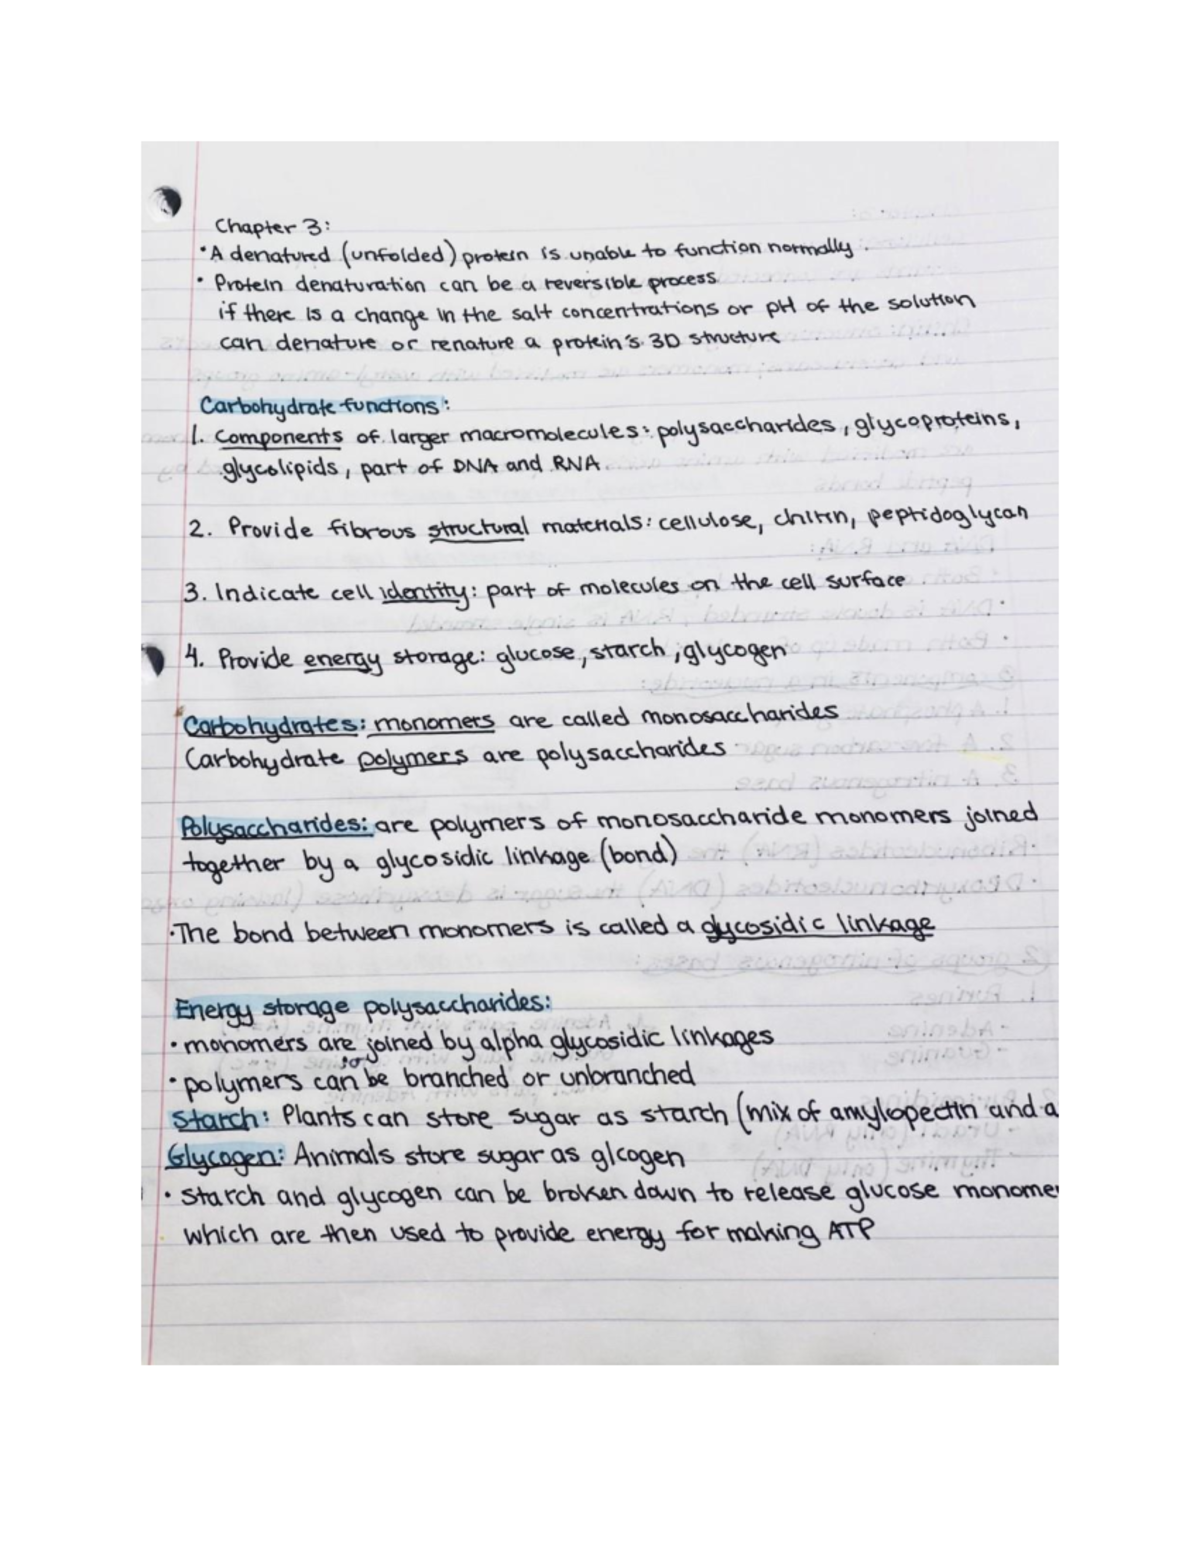 Chapter 3:
• A denatured (unfolded) protein is unable to function normally.
• Protein denaturation can be a reversible process
if there is a change in the salt concentrations or pH of the solution
can denature or renature a protein's 3D structure
Carbohydrate functions:
1. Components of larger macromolecules: polysaccharides, glycoproteins,
glycolipids, part of DNA and RNA
2. Provide fibrous structural materials: cellulose, chitin, peptidoglycan
3. Indicate cell identity: part of molecules on the cell surface
4. Provide energy storage: glucose, starch, glycogen
Carbohydrates: monomers are called monosaccharides
Carbohydrate polymers are polysaccharides
Polysaccharides: are polymers of monosaccharide monomers joined
together by a glycosidic linkage (bond)
• The bond between monomers is called a glycosidic linkage
Energy storage polysaccharides:
• monomers are joined by alpha glycosidic linkages
• polymers can be branched or unbranched
Starch: Plants can store sugar as starch (mix of amylopectin and a
Glycogen: Animals store sugar as glcogen
• Starch and glycogen can be broken down to release glucose monomer
which are then used to provide energy for making ATP